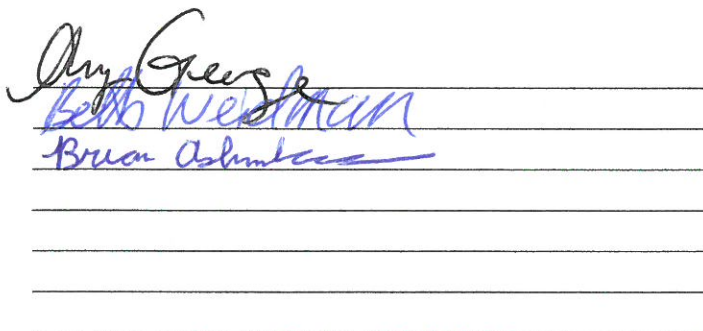 Amy George
Beth Weidman
Brian